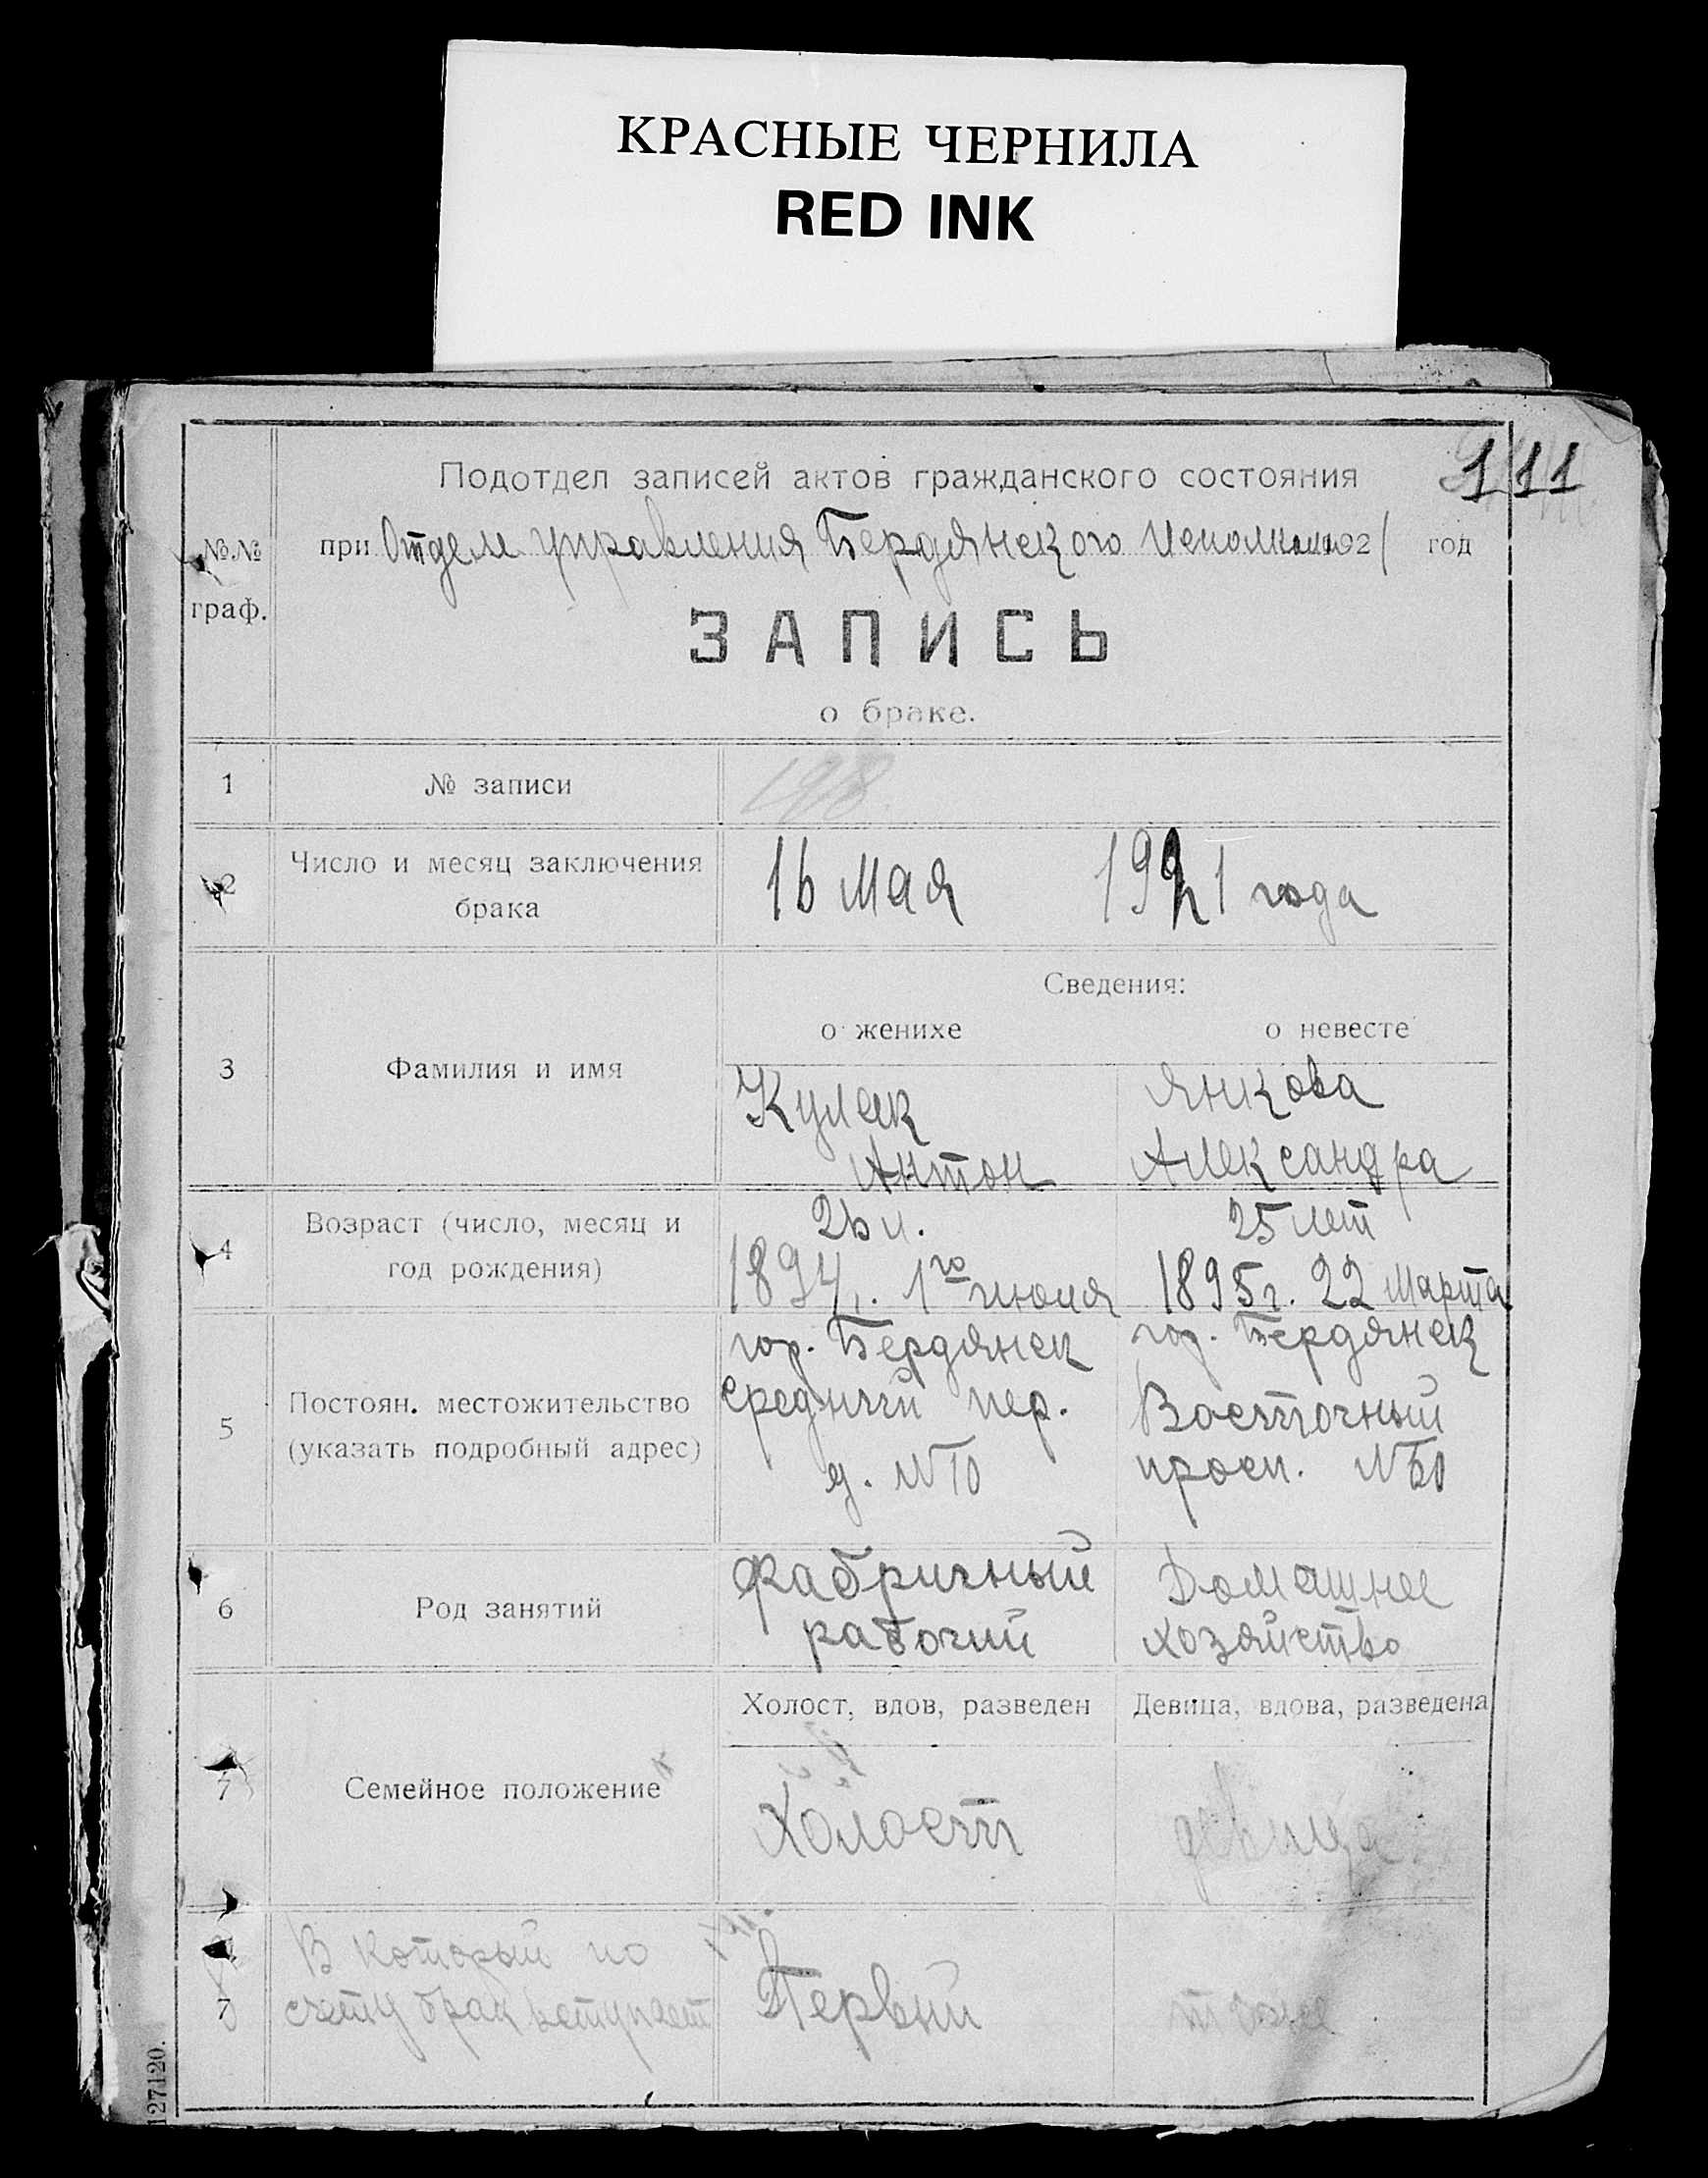 КРАСНЫЕ ЧЕРНИЛА
RED INK
111
Подотдел записей актов гражданского состояния
№№ граф.
при Отделе управления Бердянского Исполкома 1921 год
ЗАПИСЬ
о браке.
1 № записи
2 Число и месяц заключения брака
16 Мая 1921 года
Сведения:
о женихе о невесте
3 Фамилия и имя
Кулак
Антон
Янкова
Александра
4 Возраст (число, месяц и
год рождения)
26 л.
1894г. 1го июля
25 лет
1895г. 22 Марта
5 Постоян. местожительство
(указать подробный адрес)
гор. Бердянск
средний пер.
д. №10
гор. Бердянск
Восточный
просп. №60
6 Род занятий
Фабричный
рабочий
Домашнее
хозяйство
Холост, вдов, разведен Девица, вдова, разведена
7 Семейное положение
Холост
девица
7 В который по
счету брак вступает
Первый
тоже
127120.